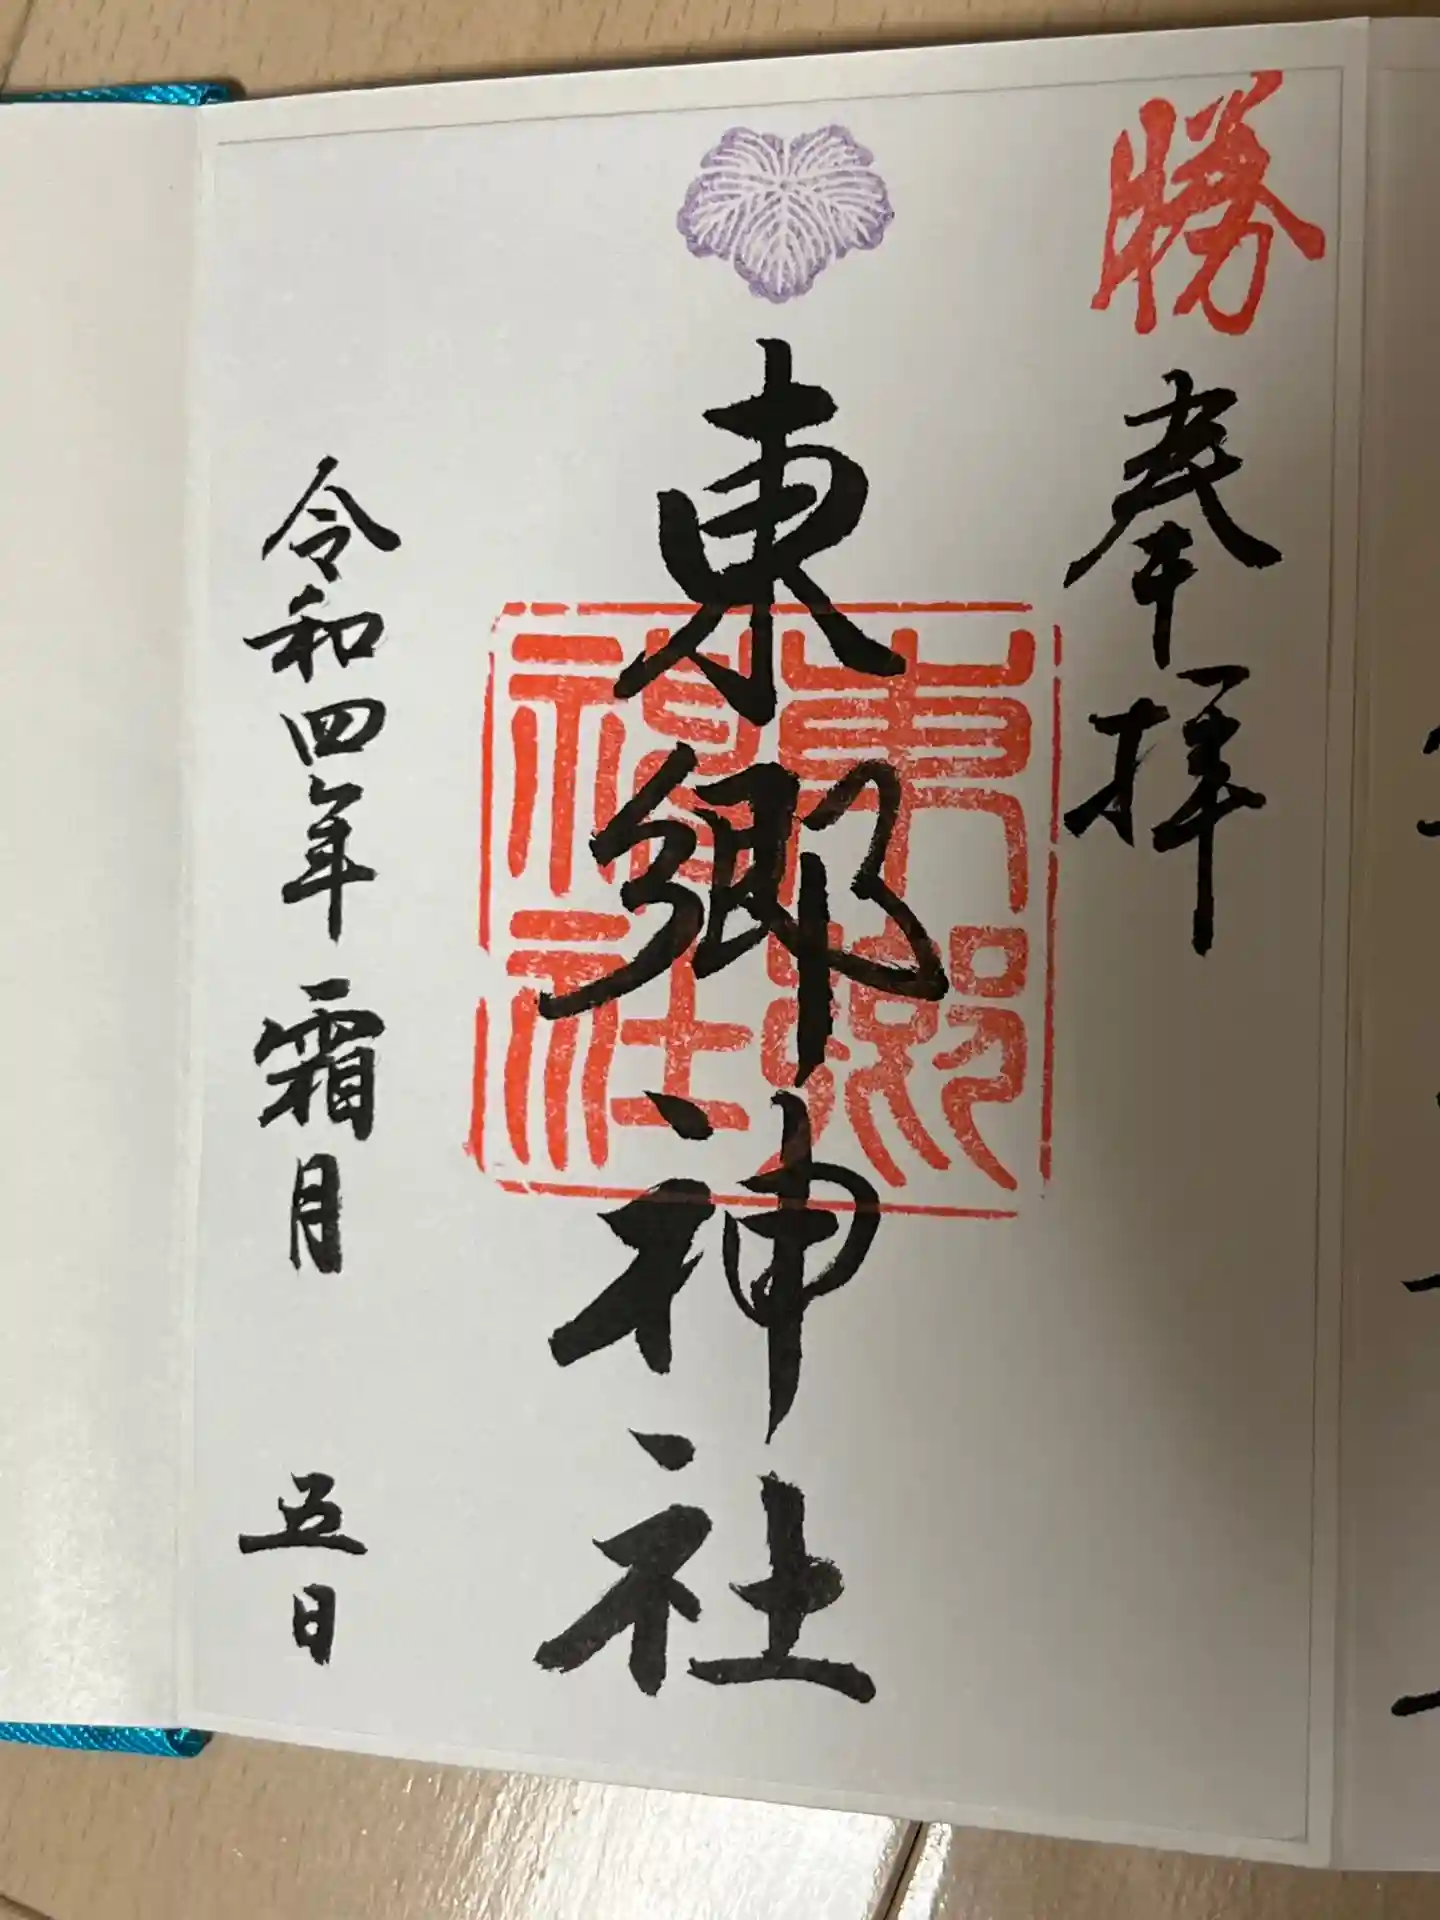 勝
奉拝
東郷神社
東郷
神社
令和四年霜月 五日